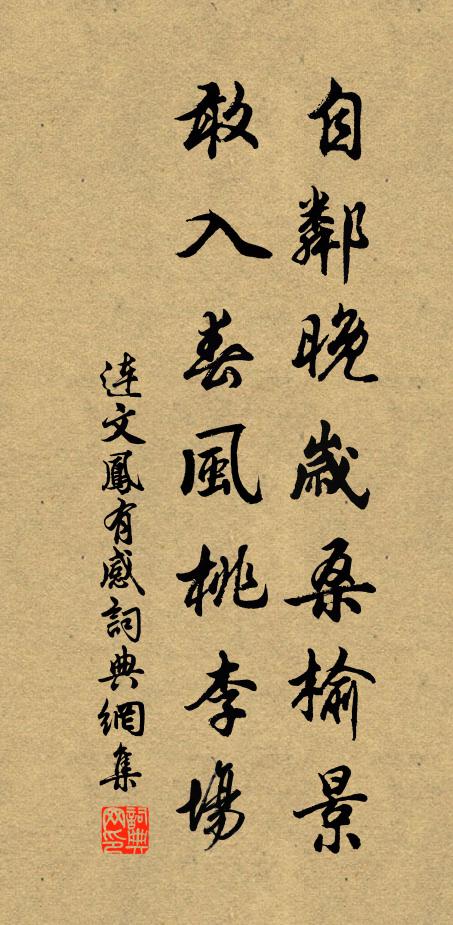 自鄰晚歲桑榆景
敢入春風桃李場
連文鳳有感詞典網集
詞典網印